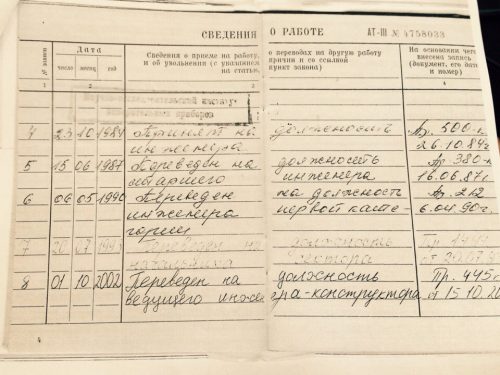 СВЕДЕНИЯ О РАБОТЕ АТ-III № 4758033
№ записи Дата Сведения о приеме на работу, о переводах на другую работу На основании чего
число месяц год и об увольнении (с указанием причин и со ссылкой внесена запись
на статью, пункт закона) (документ, его дата
и номер)
1 2 3 4
4 23 10 1984 Принят на должность Пр. 500-к
инженера 26.10.84г.
5 15 06 1987 Переведен на должность Пр. 380-к
старшего инженера 16.06.87г.
6 06 05 1990 Переведен на должность Пр. 212
инженера первой кате-
гории
7 20 07 Переведен на должность Пр.
начальника сектора от
8 01 10 2002 Переведен на должность Пр. 445к
ведущего инженера-конструктора от 15.10.
4